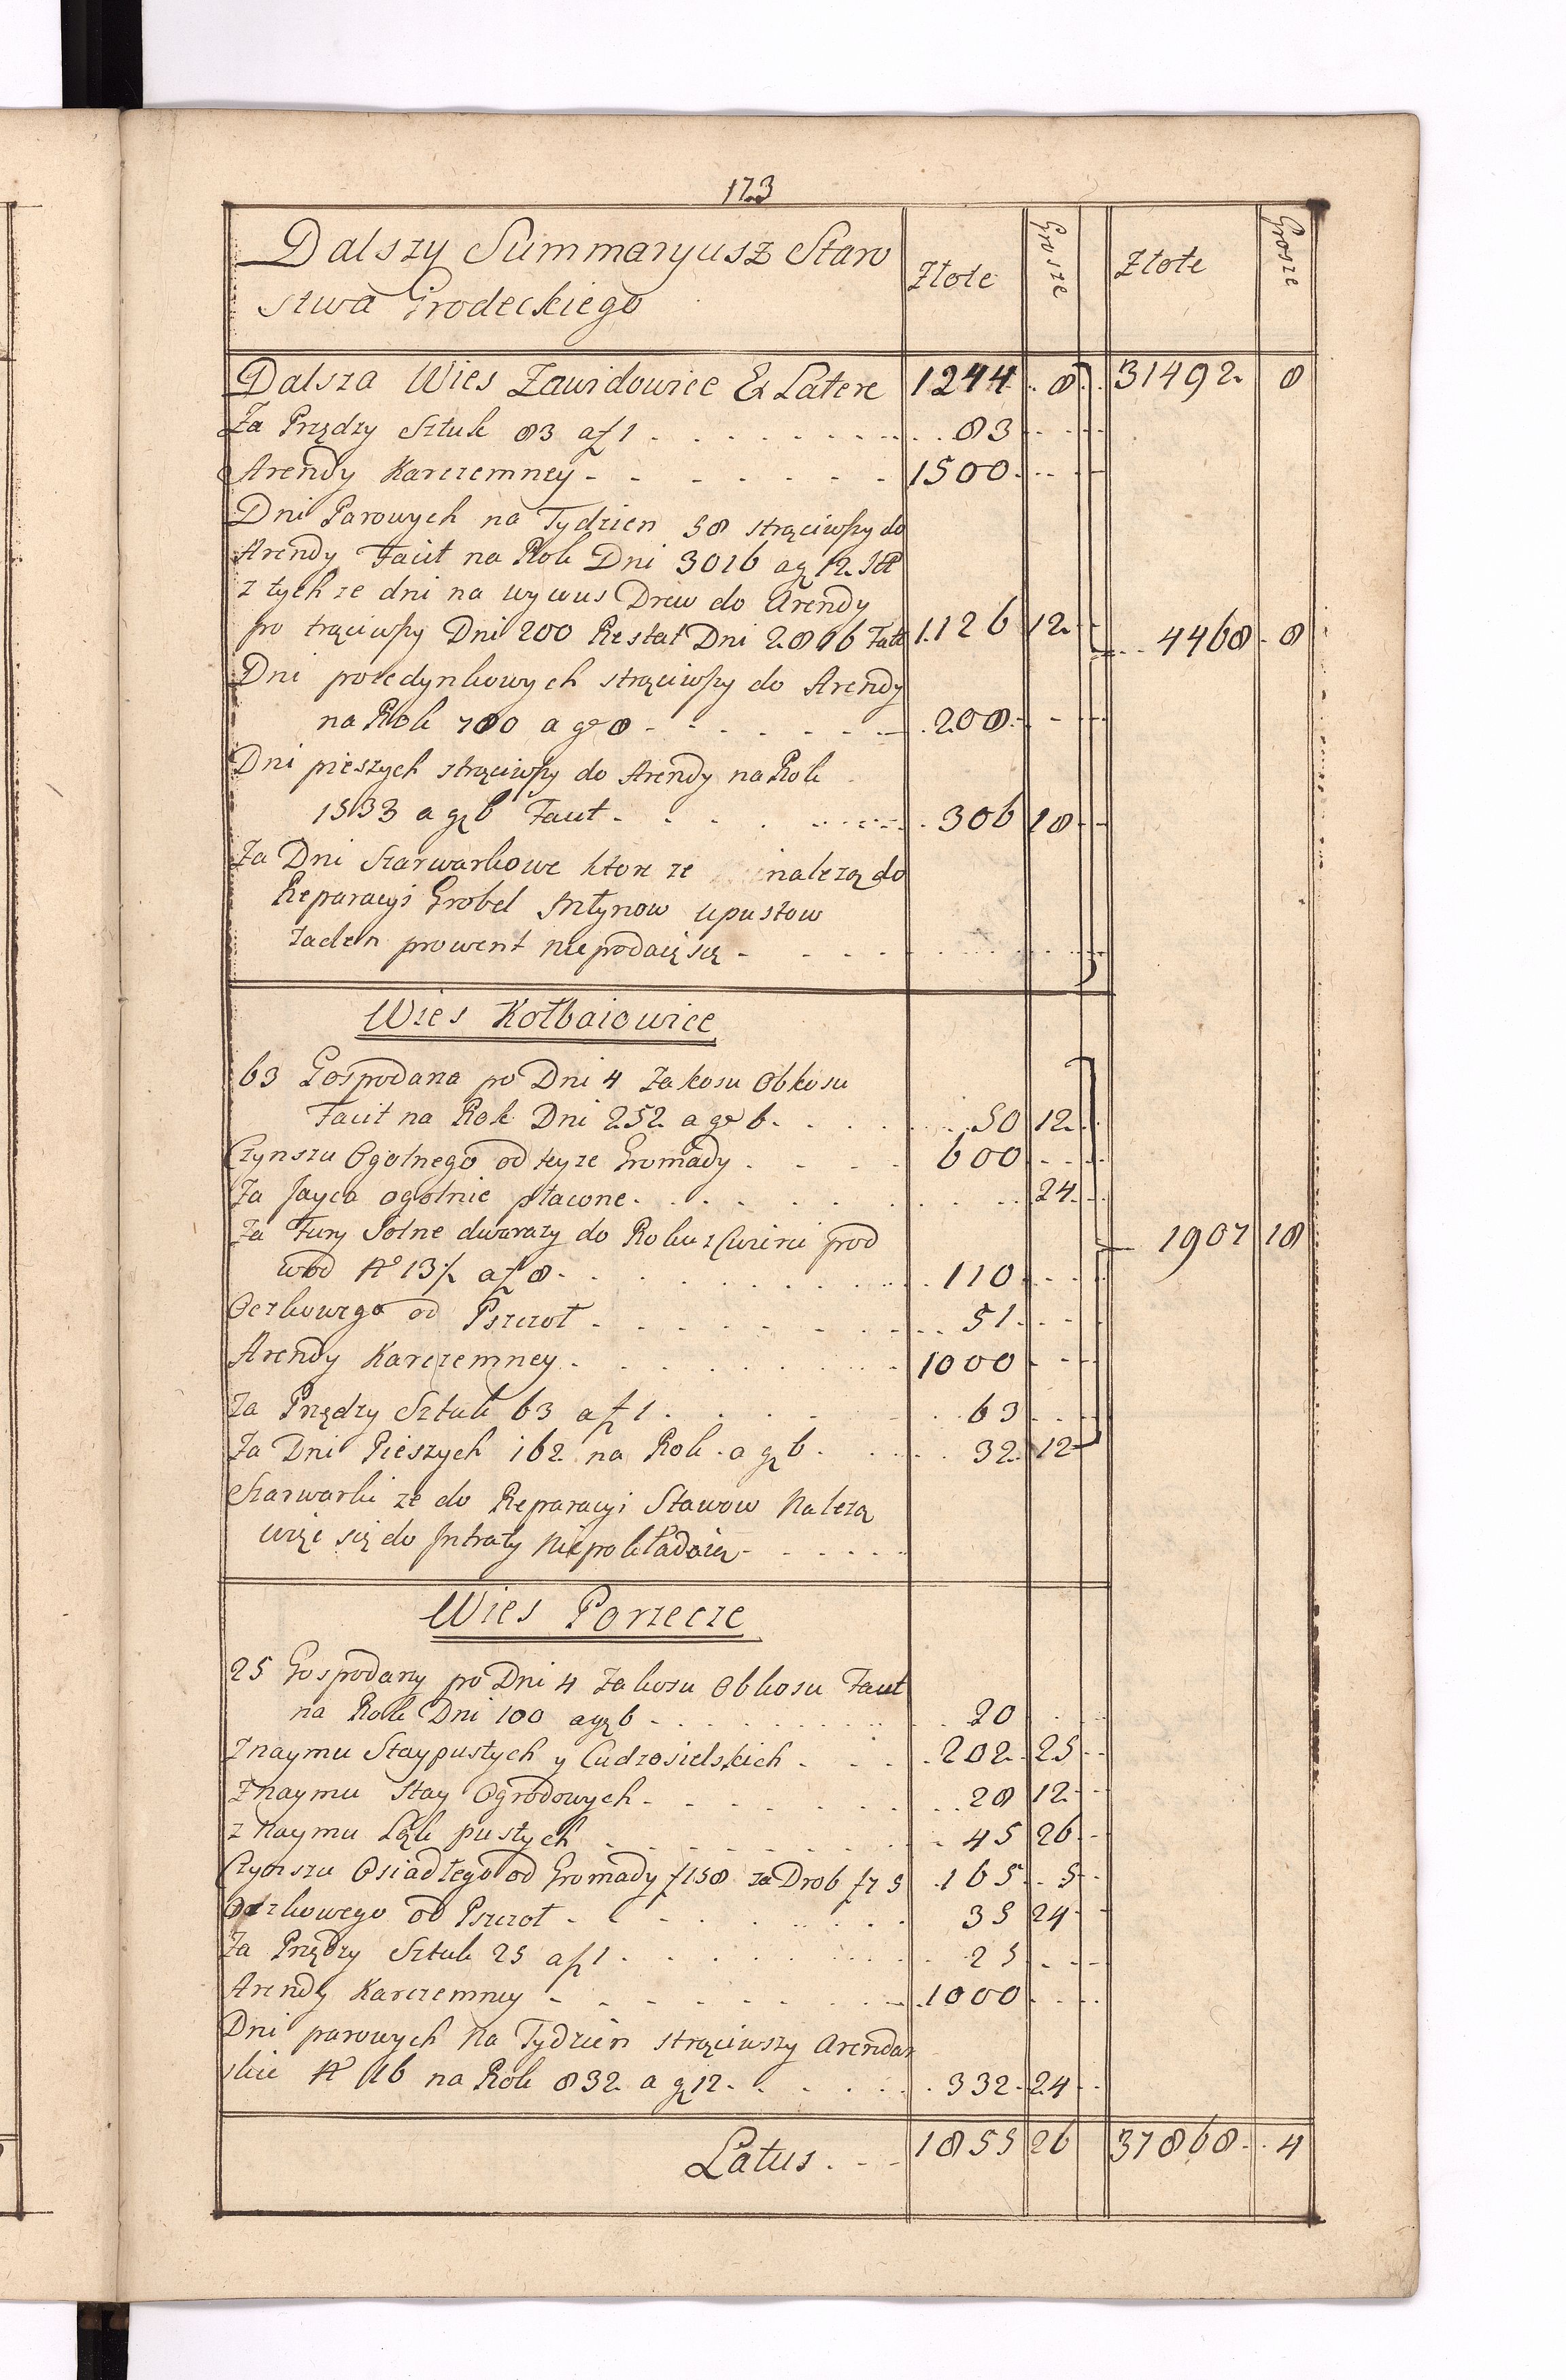 173
Dalszy Summaryusz Staro
stwa Grodeckiego
Złote Grosze Złote Grosze
Dalsza Wies Zawidowice Ex Latere 1244 8 31492 8
Za Przędzy Sztuk 83 a f 1 83
Arendy Karczemney 1500
Dni Parowych na Tydzien 58 strąciwszy do
Arendy Facit na Rok Dni 3016 a g 12
z tych ze dni na wywus Drew do Arendy
po trąciwszy Dni 200 Restat Dni 2816 Facit 1126 12 4468 8
Dni poiedynkowych strąciwszy do Arendy
na Rok 780 a gr 8 208
Dni pieszych strąciwszy do Arendy na Rok
1533 a gr 6 Facit 306 18
Za Dni Szarwarkowe ktore ze nalezą do
Reparacyi Grobel Młynow upustow
zaden prowent nie podaię się
Wies Kołbaiowice
63 Gospodarza po Dni 4 Zakosu Obkosu
Facit na Rok Dni 252 a gr 6 50 12
Czynszu Ogolnego od teyze Gromady 600
Za Jayca ogolnie płacone 24
Za Fury Solne dwarazy do Roku z Cwierci pod
wod No 13¾ a f 8 110 1907 18
Oczkowego od Pszczoł 51
Arendy Karczemney 1000
Za Przędzy Sztuk 63 a f 1 63
Za Dni Pieszych 162 na Rok a gr 6 32 12
Szarwarki ze do Reparacyi Stawow Nalezą
więc się do Intraty Niepokładaią
Wies Porzecze
25 Gospodarzy po Dni 4 Zakosu Obkosu Facit
na Rok Dni 100 a gr 6 20
Znaymu Stay pustych y Cudzosielskich 202 25
Znaymu Stay Ogrodowych 28 12
z Naymu Łąk pustych 45 26
Czynszu Osiadłego od Gromady f 158 za Drob f 7 5 165 5
Oczkowego od Pszczoł 35 24
Za Przędzy Sztuk 25 a f 1 25
Arendy Karczemney 1000
Dni parowych Na Tydzien strąciwszy Arendar
skie No 16 na Rok 832 a gr 12 332 24
Latus 1855 26 37868 4